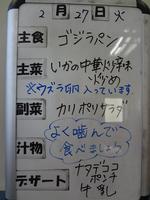 2月27日火
主食 ゴジラパン
主菜 いかの中華風辛味
炒め
※ウズラ卵入っています
副菜 カリポリサラダ
汁物 よく噛んで
食べましょう
デザート ナタデココ
ポンチ
牛乳